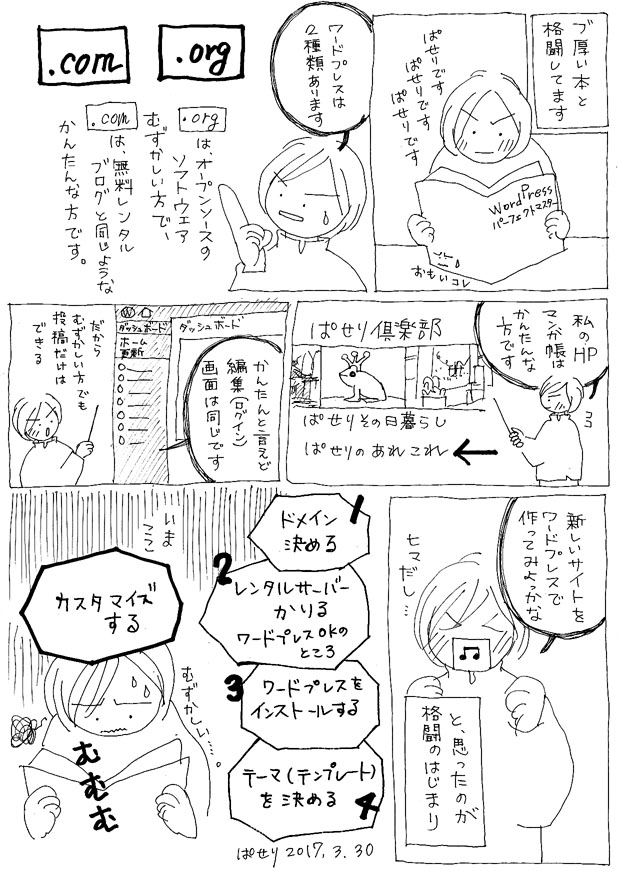 ブ厚い本と
格闘してます
ぱせりです
ぱせりです
ぱせりです
WordPress
パーフェクトマスター
おもいコレ
ワードプレスは
2種類あります
.com
.org
.orgは、オープンソースの
ソフトウェア
むずかしい方で、
.comは、無料レンタル
ブログと同じような
かんたんな方です。
私のHP
マンガ帳は
かんたんな
方です
ぱせり倶楽部
ぱせりその日暮らし
ぱせりのあれこれ
かんたんと言えど
編集(ログイン)
画面は同じです
ダッシュボード
ダッシュボード
ホーム
更新
だから
むずかしい方でも
投稿だけは
できる
新しいサイトを
ワードプレスで
作ってみよっかな
ヒマだし…
と、思ったのが
格闘のはじまり
1
ドメイン
決める
2
レンタルサーバー
かりる
ワードプレスOKの
ところ
3
ワードプレスを
インストールする
テーマ(テンプレート)
を決める
4
いま
ここ
カスタマイズ
する
むずかしい…。
むむむ
ぱせり 2017.3.30